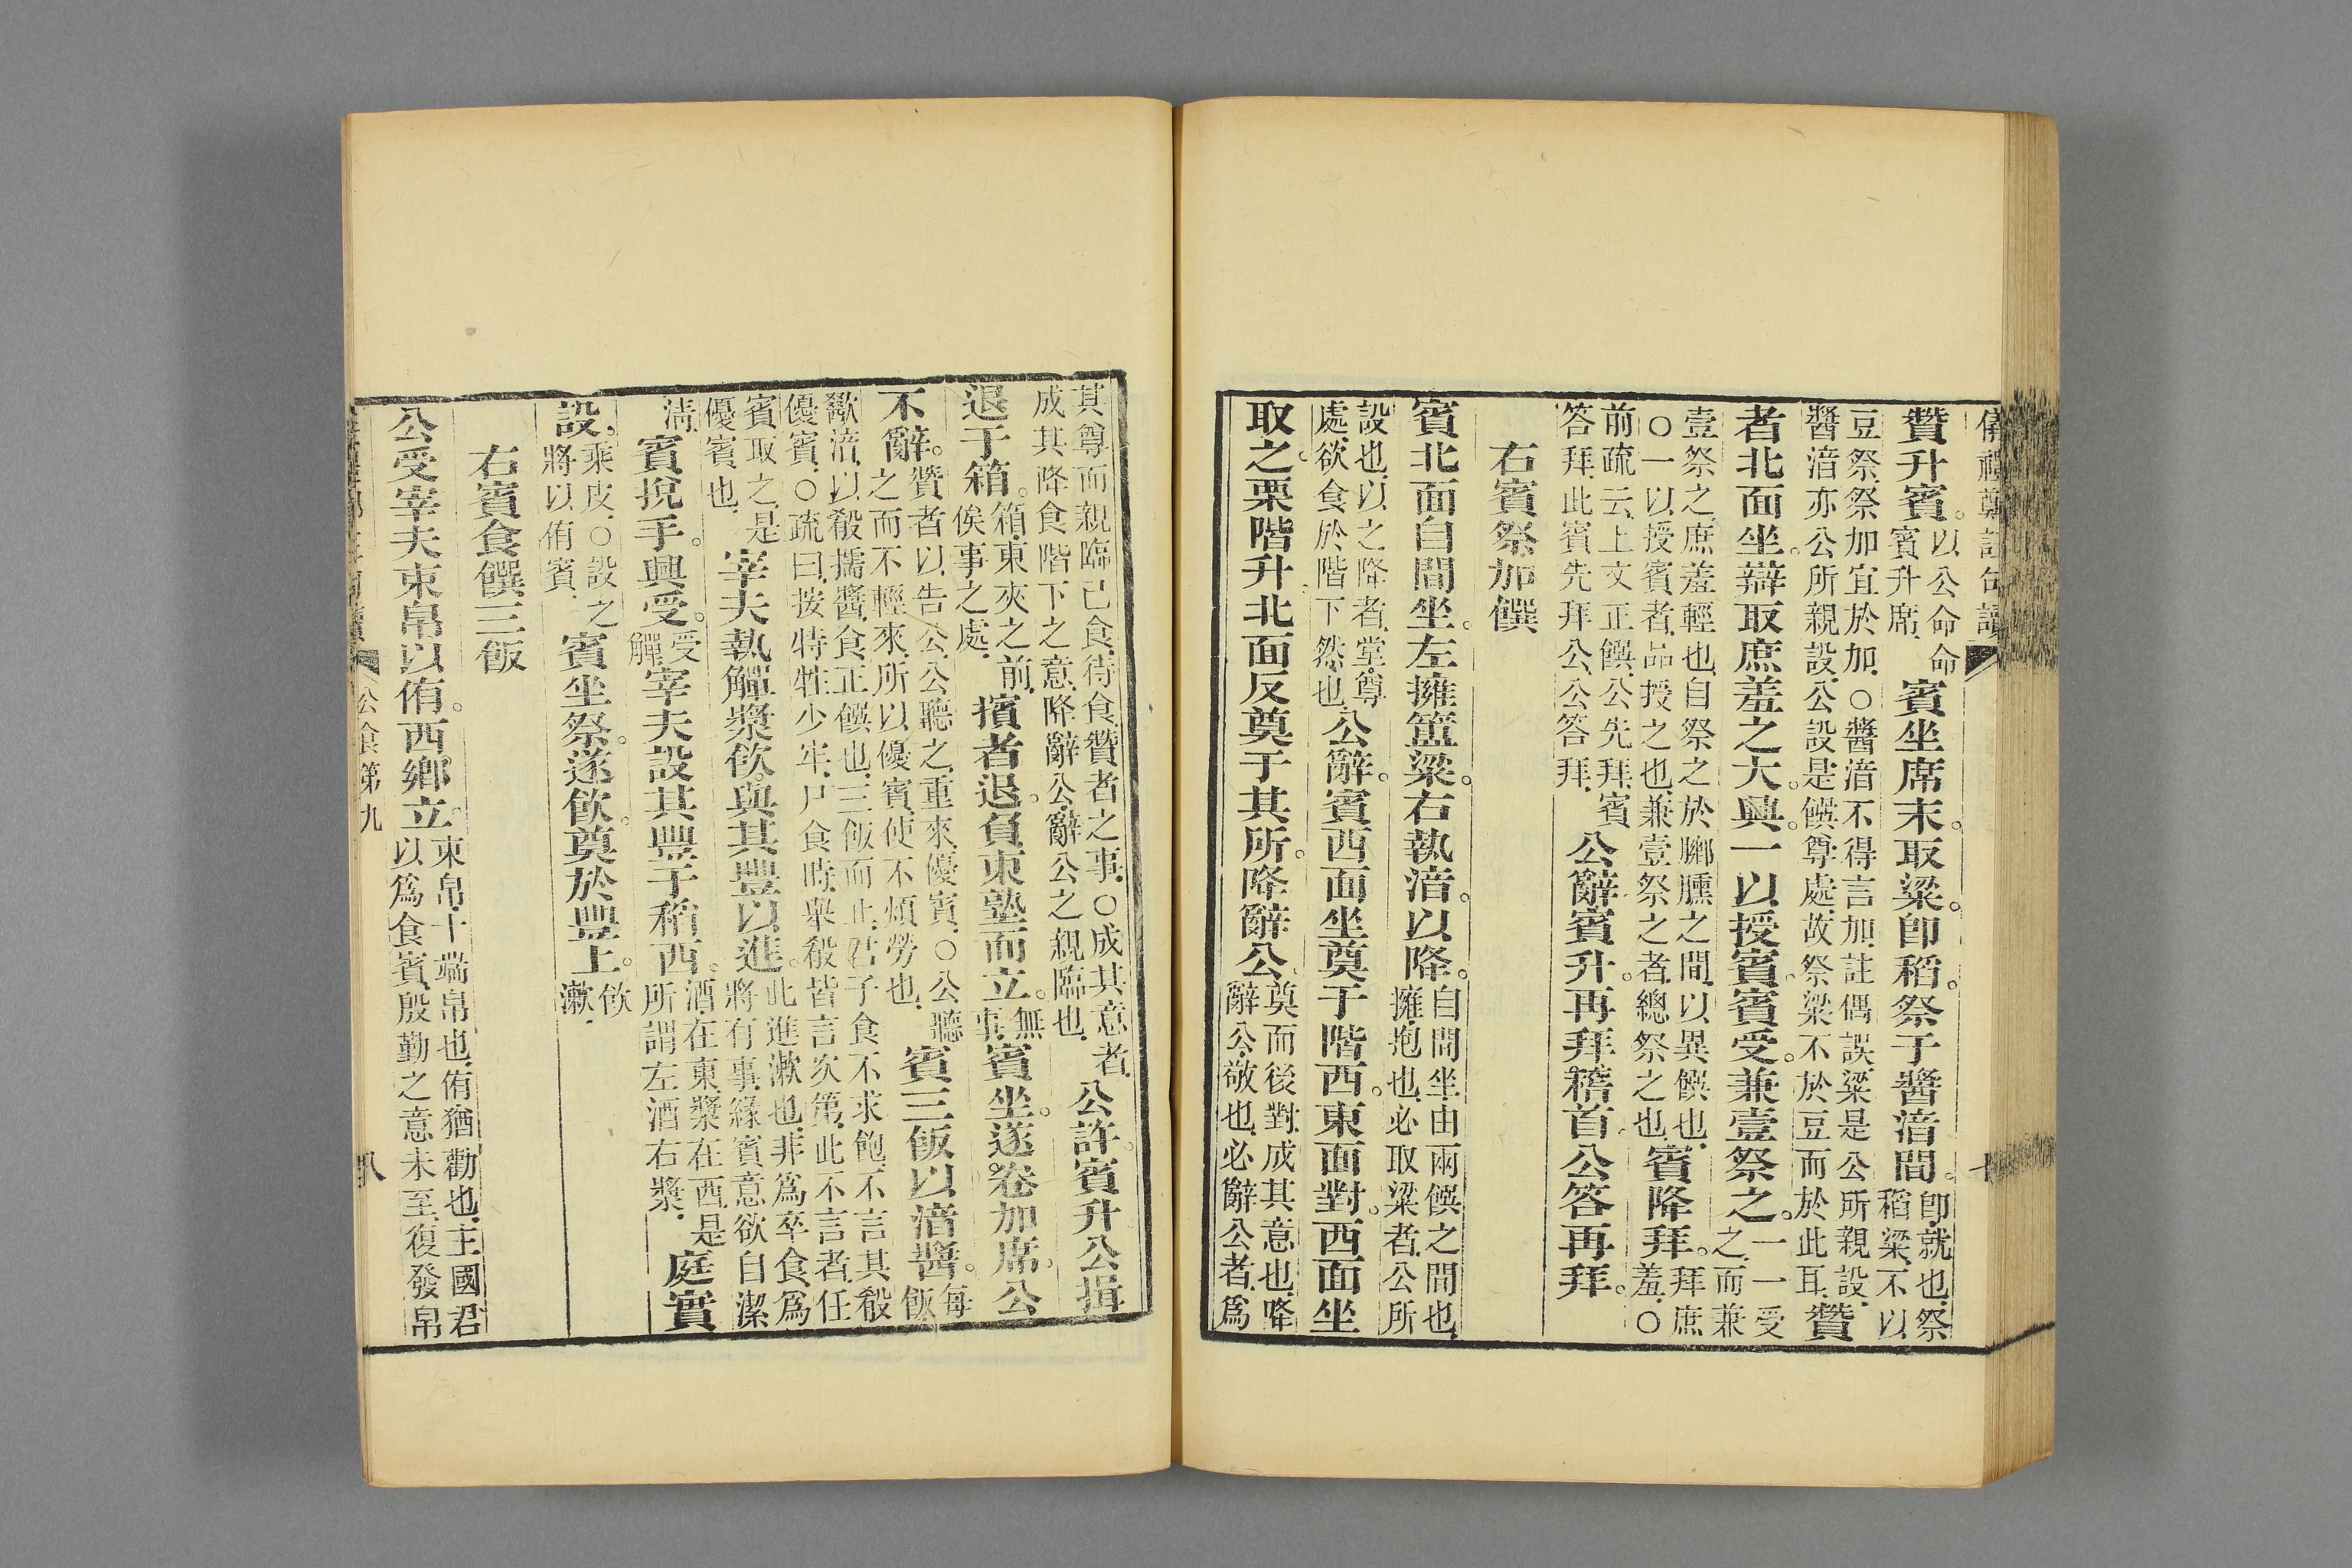 儀禮鄭註句讀
贊升賓。以公命命賓升席.賓坐席末。取粱。卽稻。祭于醬湆間。卽就也.祭稻粱.不以
豆祭.祭加宜於加.○醬湆不得言加.註偶誤.粱是公所親設.醬湆亦公所親設.公設是饌尊處.故祭粱不於豆而於此耳.贊
者北面坐。辯取庶羞之大。興。一以授賓。賓受。兼壹祭之。一一受之.而兼
壹祭之.庶羞輕也.自祭之於膷臐之間.以異饌也.○一以授賓者.品授之也.兼壹祭之者.總祭之也.賓降拜。拜庶羞.○
前疏云.上文正饌.公先拜.賓答拜.此賓先拜公.公答拜.公辭賓升。再拜稽首公答再拜。
右賓祭加饌
賓北面自間坐。左擁簠粱。右執湆。以降。自間坐由兩饌之間也.擁.抱也.必取粱者.公所
設也.以之降者.堂尊處.欲食於階下然也.公辭。賓西面坐奠于階西。東面對。西面坐
取之。栗階升。北面反奠于其所。降辭公。奠而後對.成其意也.降辭公.敬也.必辭公者.爲
其尊而親臨己食.待食.贊者之事.○成其意者.成其降食階下之意.降辭公.辭公之親臨也.公許。賓升公揖
退于箱。箱.東夾之前.俟事之處.擯者退。負東塾而立。無事.賓坐。遂卷加席。公
不辭。贊者以告公.公聽之.重來.優賓.○公聽之而不輕來.所以優賓.使不煩勞也.賓三飯以湆醬。每飯
歠湆.以殽擩醬.食正饌也.三飯而止.君子食不求飽.不言其殽.優賓.○疏曰.按特牲少牢.尸食時.舉殽皆言次第.此不言者.任
賓取之.是優賓也.宰夫執觶漿飲。與其豐以進。此進漱也.非爲卒食.爲將有事.緣賓意欲自潔
清.賓挩手。興。受。受觶.宰夫設其豐于稻西。酒在東.漿在西.是所謂左酒右漿.庭實
設。乘皮.○設之將以侑賓.賓坐祭。遂飲。奠於豐上。飲漱.
右賓食饌三飯
公受宰夫束帛以侑。西鄉立。束帛.十端帛也.侑猶勸也.主國君以爲食賓.殷勤之意未至.復發帛
公食第九 八